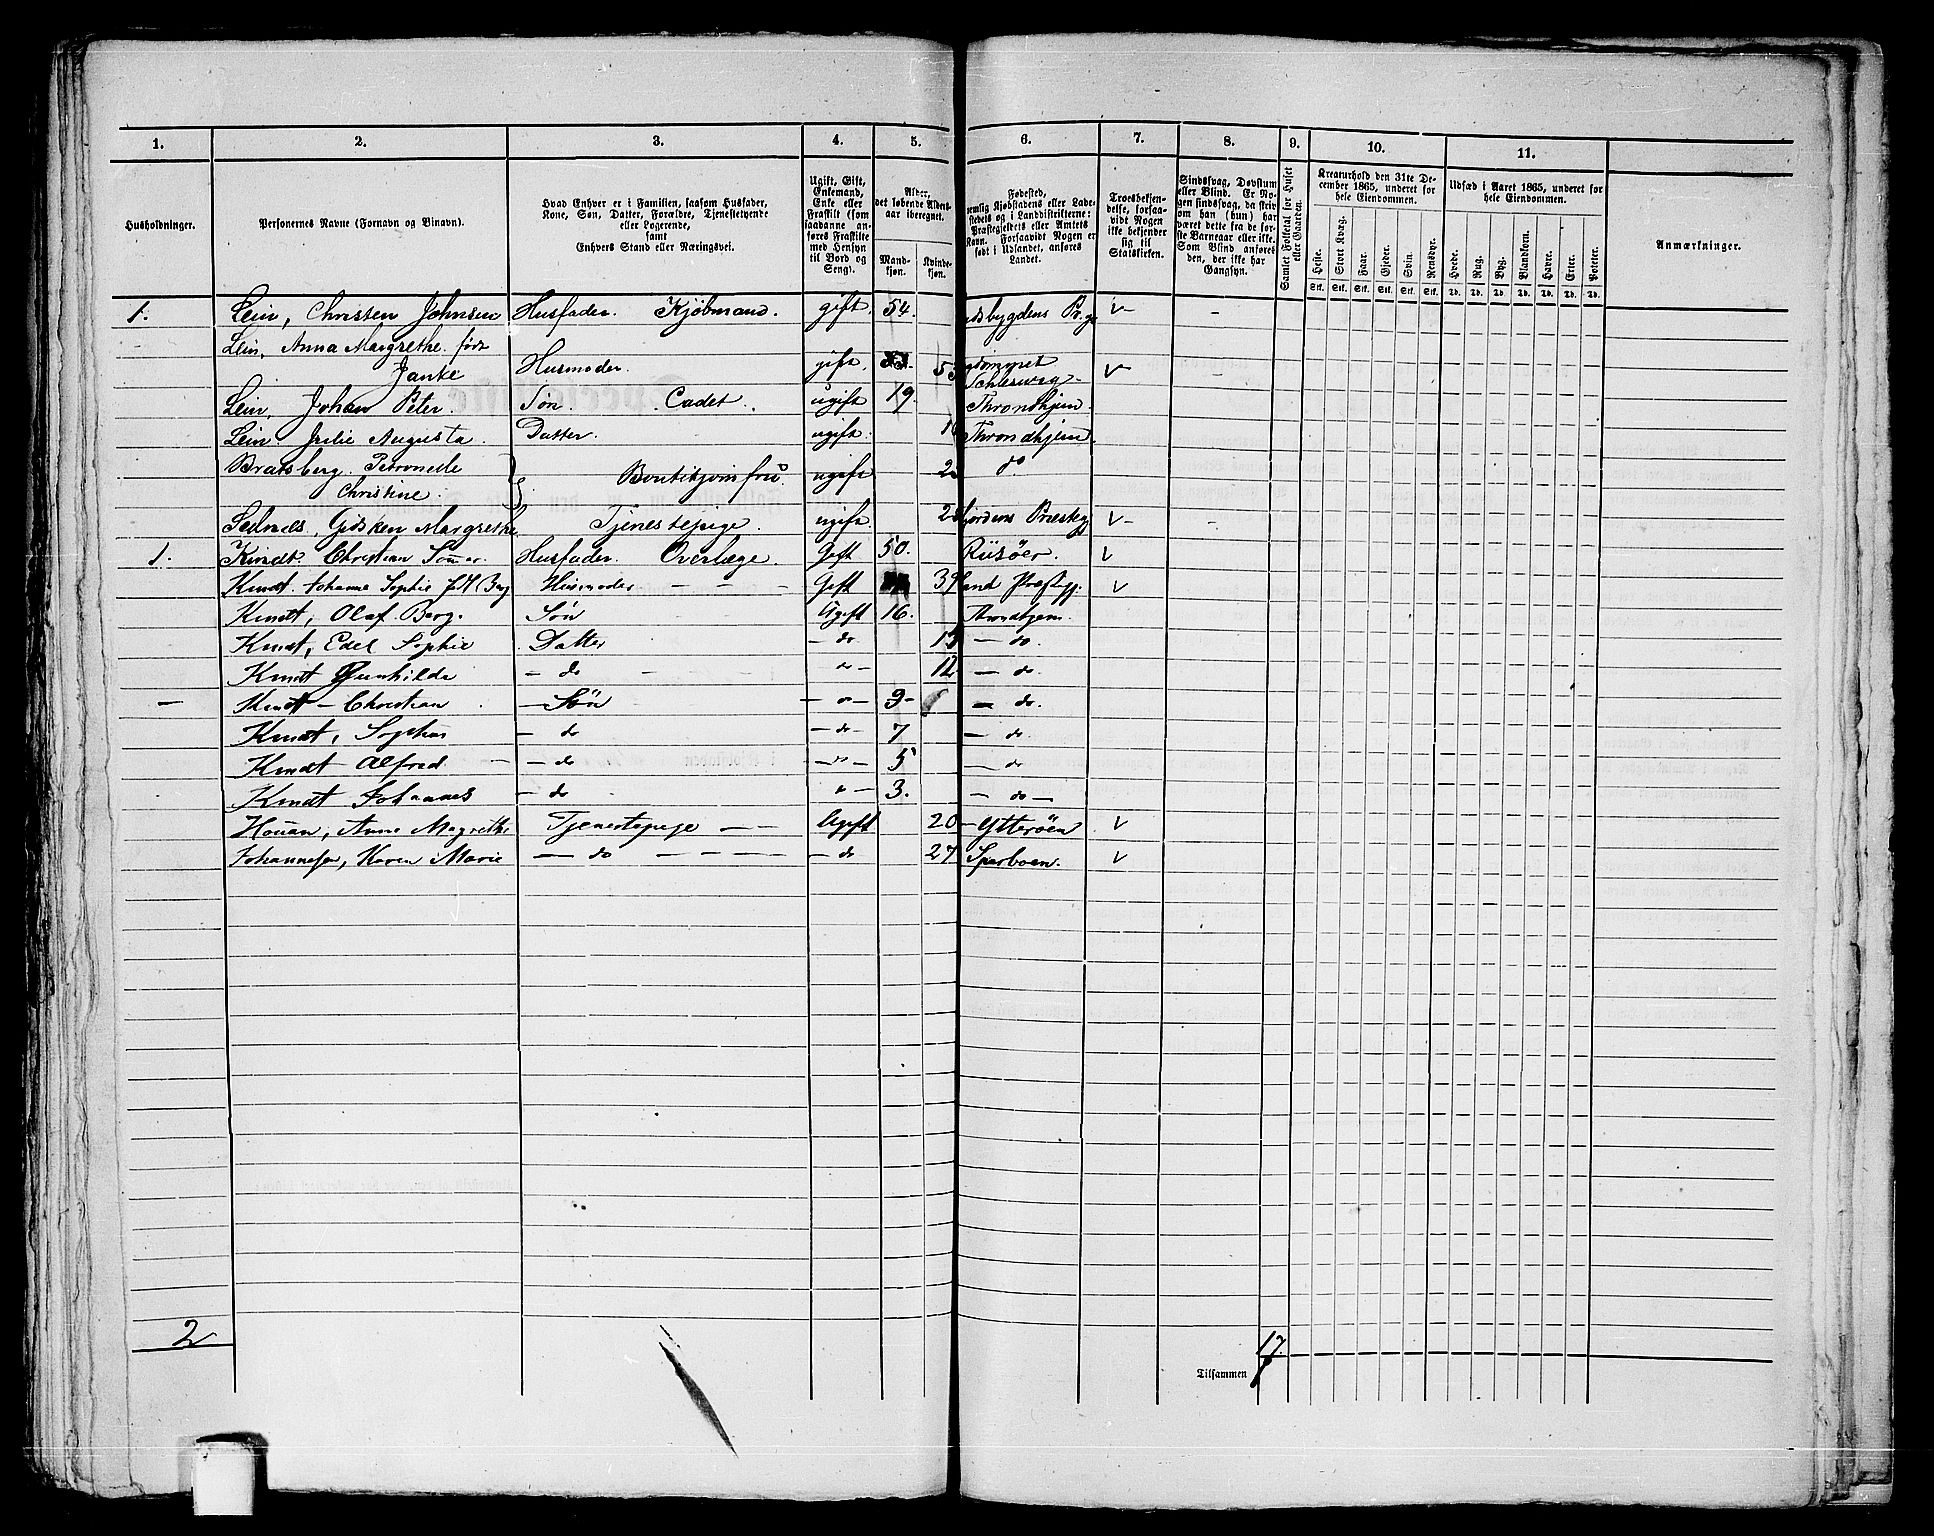 1. 2. 3. 4. 5. 6. 7. 8. 9. 10. 11.
Husholdninger.
Personernes Navne (Fornavn og Binavn).
Hvad Enhver er i Familien, saasom Husfader,
Kone, Søn, Datter, Forældre, Tjenestetyende
eller Logerende,
samt
Enhvers Stand eller Næringsvei.
Ugift, Gift,
Enkemand,
Enke eller
Fraskilt (som
saadanne an-
føres Fraskilte
med Hensyn
til Bord og
Seng).
Alder,
det løbende Alders-
aar iberegnet.
Mand-
kjøn.
Kvinde-
kjøn.
Fødested,
nemlig Kjøbstadens eller Lade-
stedets og i Landdistrikterne:
Præstegjeldets eller Amtets
Navn. Forsaavidt Nogen er
født i Udlandet, anføres
Landet.
Troesbekjen-
delse, forsaa-
vidt Nogen
ikke bekjender
sig til
Statskirken.
Sindssvag, Døvstum
eller Blind. Er No-
gen sindssvag, da skriv
om han (hun) har
været dette fra de før-
ste Barneaar eller ikke.
Som Blind anføres
den, der ikke har
Gangsyn.
Samlet Folketal for Huset
eller Gaarden.
Kreaturhold den 31te De-
cember 1865, underet for
hele Eiendommen.
Heste. Stort Kvæg. Faar. Gjeder. Svin. Rensdyr.
Stk. Stk. Stk. Stk. Stk. Stk.
Udsæd i Aaret 1865, underet for
hele Eiendommen.
Hvede. Rug. Byg. Blandkorn. Havre. Erter. Poteter.
Td. Td. Td. Td. Td. Td. Td.
Anmærkninger.
1. Lein, Christen Johnsen Husfader. Kjøbmand. gift. 54. Pr.gj
Lein, Anna Margrethe. født
Janke Husmoder. gift. 53 Schleswig
Lein, Johan Peter. Søn. Cadet. ugift 19. Throndhjem
Lein Julie Augusta. Datter. ugift. Throndhjem
Bratsberg. Petronelle
Christine. Boutikjomfru ugift do
Selnæs, Gidsken Margrethe Tjenestepige. ugift.
1. Kindt. Christian Sommer. Husfader. Overlæge. Gift 50. Riisöer.
Kindt. Johanne Sophie Husmoder - - - Gift 39
Kindt, Olaf Berg. Søn Ugift 16. Throndhjem
Kindt, Edel Sophie Datter - do 13 - do.
Kindt Gunhilda - do - 12 - do.
- Kindt - Christian - Søn 9 - - do.
Kindt, Sophus - do - do - 7 - do
Kindt Alfred - - do - do - 5 - do
Kindt Johannes - do 3. - do -
Houan, Anne Magrethe Tjenestepige - - Ugift 20 - Ytterøen
Johannesen, Karen Marie - do - - - - do 27 Sparboen.
2
Tilsammen 17.